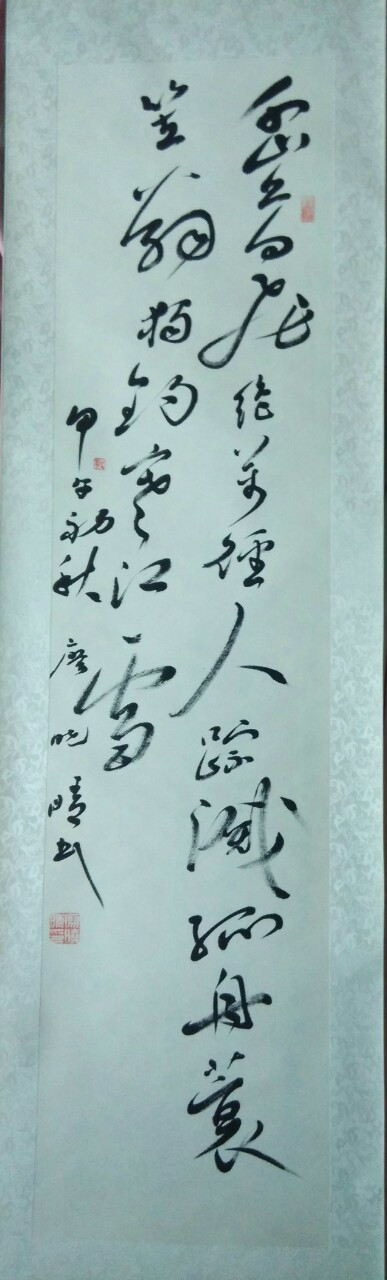 千山鳥飛絕萬徑人踪滅孤舟蓑
笠翁獨釣寒江雪
甲午初秋 廖晓晴书